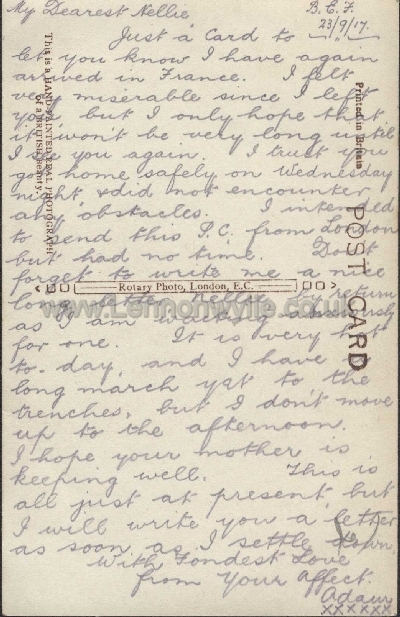 My Dearest Nellie,
B.E.F.
23/9/17.
Just a Card to
let you know I have again
arrived in France. I felt
very miserable since I left
you, but I only hope that
it won't be very long until
I see you again. I trust you
got home safely on Wednesday
night, & did not encounter
any obstacles. I intended
to send this P.C. from London
but had no time. Don't
forget to write me a nice
long letter Nellie, by return
as I am waiting anxiously
for one. It is very hot
to-day, and I have a
long march yet to the
trenches, but I don't move
up to the afternoon.
I hope your mother is
keeping well. This is
all just at present, but
I will write you a letter
as soon as I settle down.
With Fondest Love
from Your Affect.
Adam
xxxxxx
This is a HAND-PAINTED REAL PHOTOGRAPH
of a BRITISH Beauty.
Printed in Britain
POST CARD
Rotary Photo, London, E.C.
www.Lennonwylie.co.uk